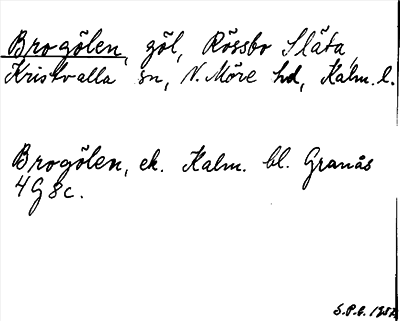 Brogölen, göl, Rössbo Släta,
Kristvalla sn, N. Möre hd, Kalm. l.
Brogölen, ek. Kalm. bl. Granås
4G8c.
S.P.B.